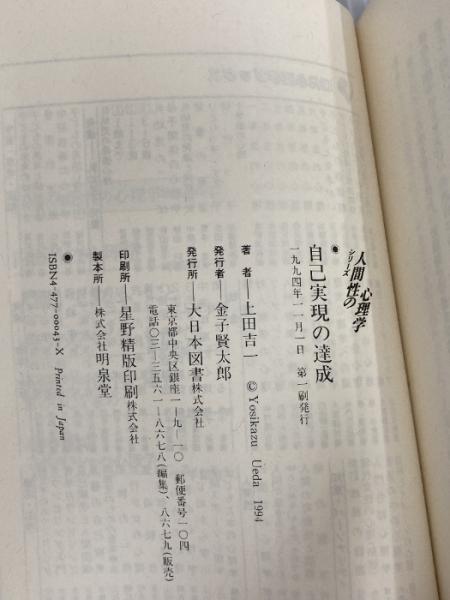 人間性の心理学
シリーズ
自己実現の達成
一九九四年一一月一日 第一刷発行
著 者——上田吉一 © Yosikazu Ueda 1994
発行者——金子賢太郎
発行所——大日本図書株式会社
東京都中央区銀座一—九—一〇 郵便番号一〇四
電話〇三—三五六一—八六七八(編集)、八六七九(販売)
印刷所——星野精版印刷株式会社
製本所——株式会社明泉堂
ISBN4-477-00043-X Printed in Japan